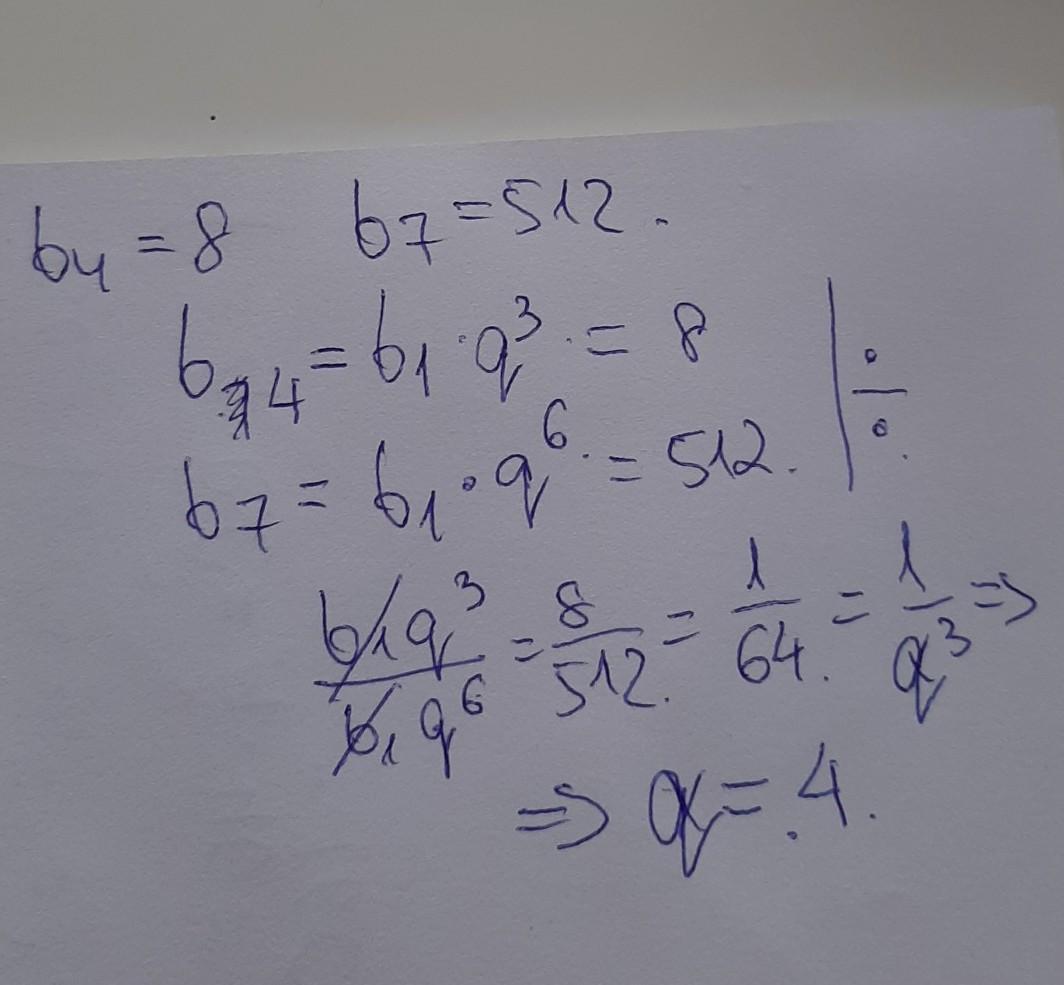 b₄ = 8 b₇ = 512.
b₄ = b₁ · q³ = 8
b₇ = b₁ · q⁶ = 512. | ÷
b₁q³/b₁q⁶ = 8/512. = 1/64. = 1/q³ ⇒
⇒ q = 4.